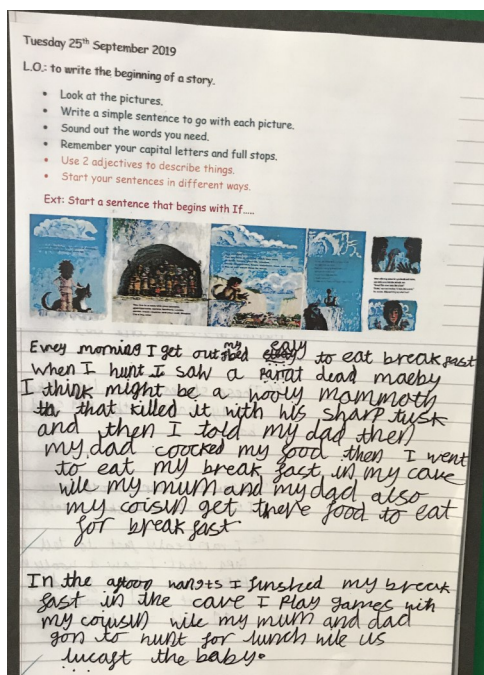 Tuesday 25th September 2019
L.O.: to write the beginning of a story.
• Look at the pictures.
• Write a simple sentence to go with each picture.
• Sound out the words you need.
• Remember your capital letters and full stops.
• Use 2 adjectives to describe things.
• Start your sentences in different ways.
Ext: Start a sentence that begins with If.....
Evrey morning I get out my bed ealy to eat break fast
when I hunt I saw a dead maeby
I think might be a wooly mammoth
that killed it with his sharp tusk
and then I told my dad then
my dad coocked my food then I went
to eat my break fast in my cave
wile my mum and my dad also
my coisin get there food to eat
for break fast
In the I finshed my break
fast in the cave I play games with
my cowisin wile my mum and dad
gon to hunt for lunch wile us
lucaft the baby.